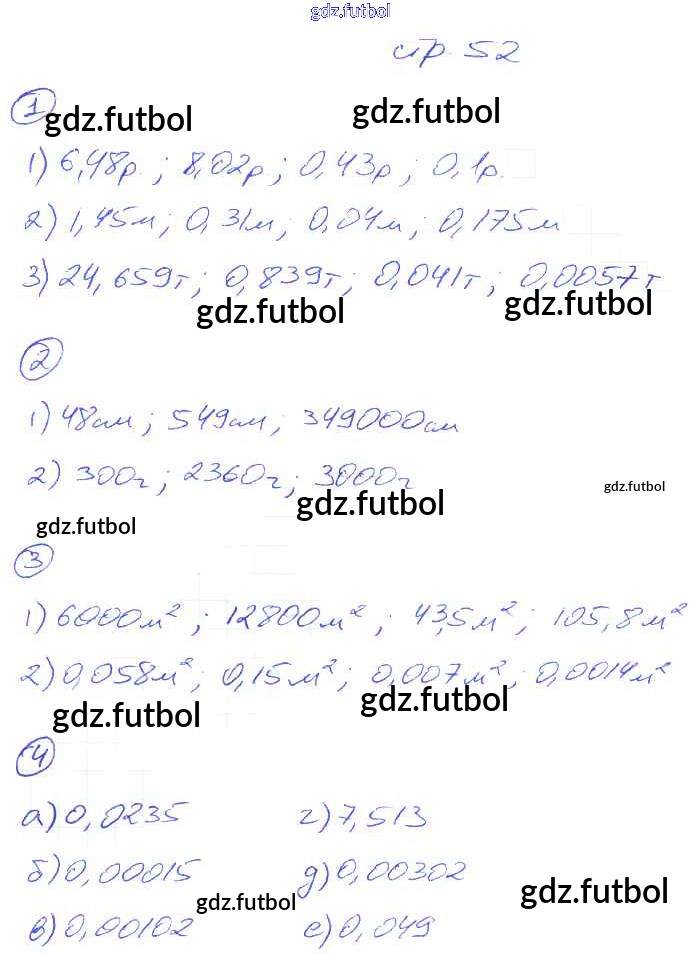 gdz.futbol
стр. 52
1 gdz.futbol gdz.futbol
1) 6,48р.; 8,02р.; 0,43р; 0,1р.
2) 1,45м; 0,31м; 0,04м; 0,175м
3) 24,659т; 0,839т; 0,041т; 0,0057т
gdz.futbol gdz.futbol
2
1) 48см; 549см; 349000см
2) 300г; 2360г; 3000г
gdz.futbol gdz.futbol gdz.futbol
3
1) 6000м²; 12800м²; 43,5м²; 105,8м²
2) 0,058м²; 0,15м²; 0,007м²; 0,0014м²
gdz.futbol gdz.futbol
4
а) 0,0235 г) 7,513
б) 0,00015 д) 0,00302
gdz.futbol gdz.futbol
в) 0,00102 е) 0,049